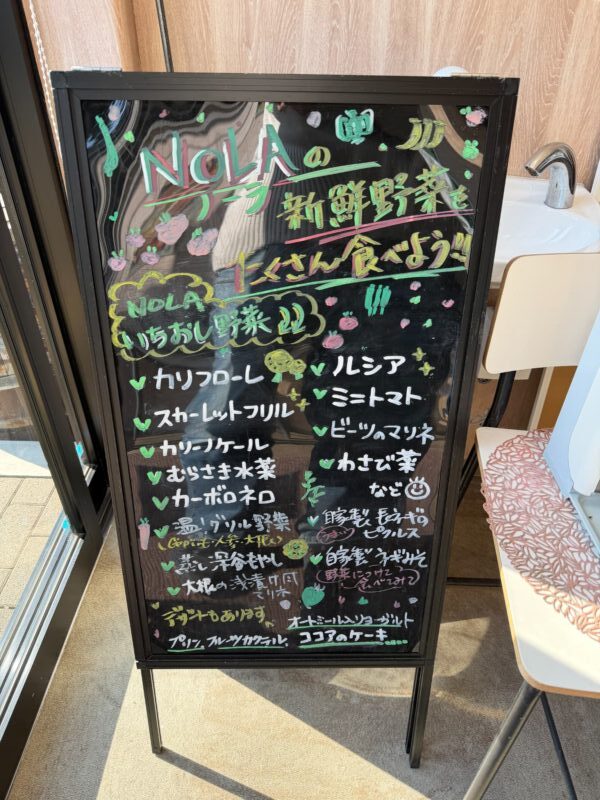 NOLAの
ノーラ
新鮮野菜を
たくさん食べよう!!
NOLA
いちおし野菜♪♪
カリフローレ
スカーレットフリル
カリーノケール
むらさき水菜
カーボロネロ
温!グリル野菜
蒸し深谷もやし
大根の浅漬け
ルシア
ミニトマト
ビーツのマリネ
わさび菜
など
自家製 長ネギの
ピクルス
自家製 ネギみそ
野菜につけて
食べてみて
デザートもあります
プリン、フルーツカクテル、
オートミール入りヨーグルト
ココアのケーキ